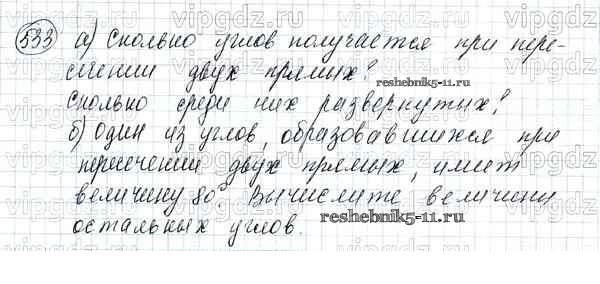 533 а) Сколько углов получается при пере-
сечении двух прямых?
reshebnik5-11.ru
Сколько среди них развернутых?
б) Один из углов, образовавшихся при
пересечении двух прямых, имеет
величину 80°. Вычислите величины
остальных углов.
reshebnik5-11.ru
vipgdz.ru